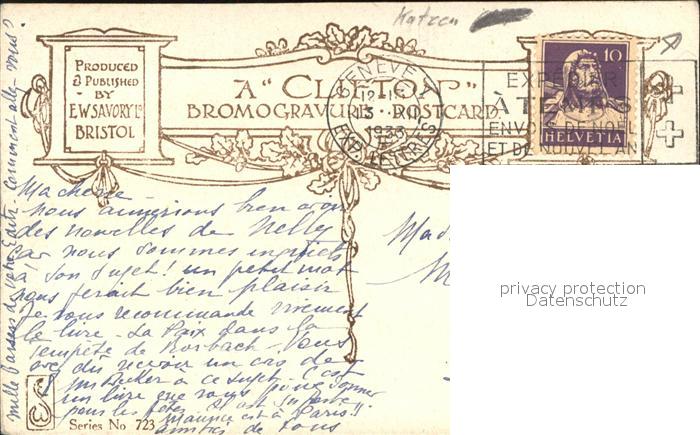 Katzen
PRODUCED
& PUBLISHED
BY
E.W.SAVORY LD
BRISTOL
A "CLIFTON"
BROMOGRAVURE POSTCARD.
GENÈVE 1
3. XII
EXP. LETTRES
10
HELVETIA
EXPÉDIER
À TEMPS
ENVOIS DE NOËL
ET DE NOUVEL AN
Ma chérie -
nous aimerions bien avoir
des nouvelles de Nelly
car nous sommes inquiets
à son sujet! un petit mot
nous ferait bien plaisir
Je vous recommande vivement
le livre - La Paix dans la
tempête de Rorbach - Vous
avez dû recevoir un cas de
à ce sujet. C'est
un livre que vous donner
pour les fêtes.
Maurice est à Paris!!
amitiés de tous
mille baisers de votre Edith. Comment allez-vous?
Series No 723
privacy protection
Datenschutz